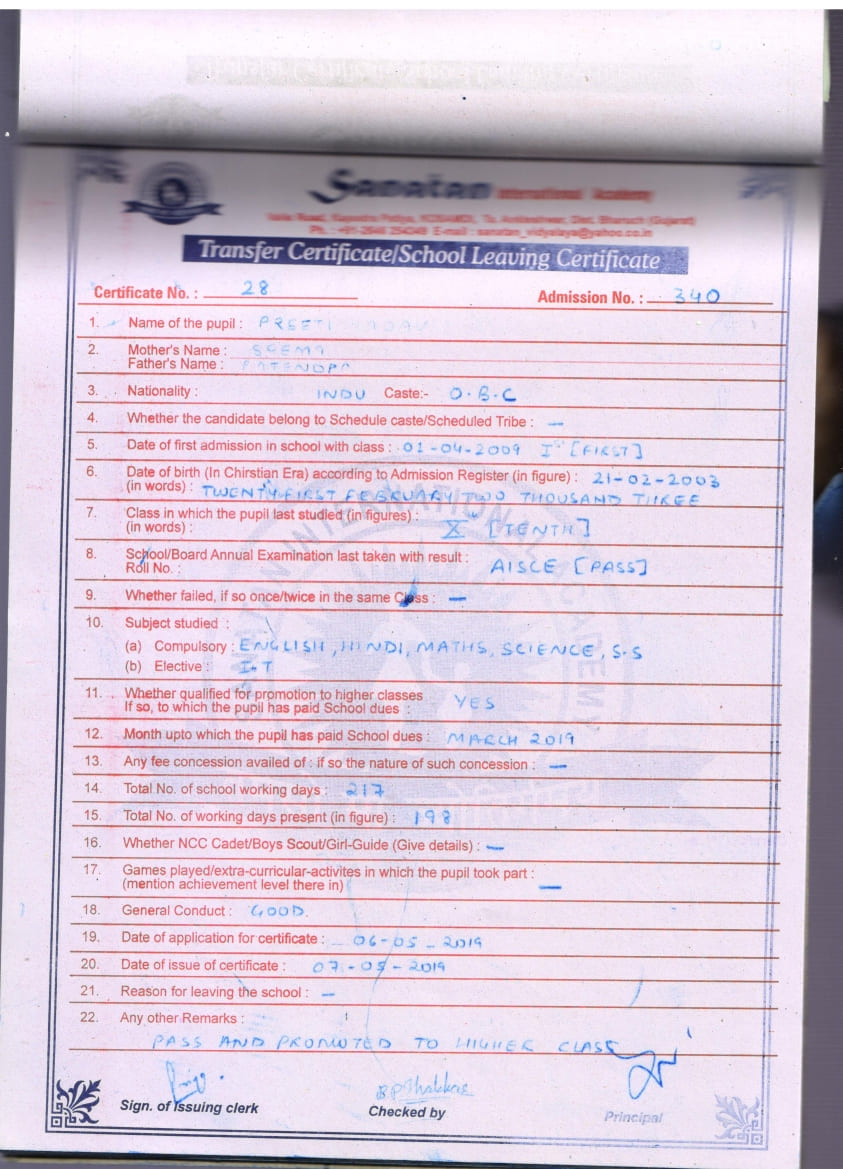 Sanatan International Academy
Valia Road, Kapodra Patiya, KOSAMDI, Ta. Ankleshwar, Dist. Bharuch (Gujarat)
E-mail : sanatan_vidyalaya@yahoo.co.in
Transfer Certificate/School Leaving Certificate
Certificate No. : 28 Admission No. : 340
1. Name of the pupil : PREETI YADAV
2. Mother's Name : SEEMA
Father's Name :
3. Nationality : INDU Caste:- O.B.C
4. Whether the candidate belong to Schedule caste/Scheduled Tribe : —
5. Date of first admission in school with class : 01-04-2009 Ist [FIRST]
6. Date of birth (In Chirstian Era) according to Admission Register (in figure) : 21-02-2003
(in words) : TWENTY FIRST FEBRUARY TWO THOUSAND THREE
7. Class in which the pupil last studied (in figures) :
(in words) : X [TENTH]
8. School/Board Annual Examination last taken with result :
Roll No. : AISCE [PASS]
9. Whether failed, if so once/twice in the same Class : —
10. Subject studied :
(a) Compulsory : ENGLISH, HINDI, MATHS, SCIENCE, S.S
(b) Elective : I.T
11. Whether qualified for promotion to higher classes
If so, to which the pupil has paid School dues : YES
12. Month upto which the pupil has paid School dues : MARCH 2019
13. Any fee concession availed of : if so the nature of such concession : —
14. Total No. of school working days : 217
15. Total No. of working days present (in figure) : 198
16. Whether NCC Cadet/Boys Scout/Girl-Guide (Give details) : —
17. Games played/extra-curricular-activites in which the pupil took part :
(mention achievement level there in) —
18. General Conduct : GOOD.
19. Date of application for certificate : 06-05-2019
20. Date of issue of certificate : 07-05-2019
21. Reason for leaving the school : —
22. Any other Remarks :
PASS AND PROMOTED TO HIGHER CLASS
Sign. of Issuing clerk Checked by Principal